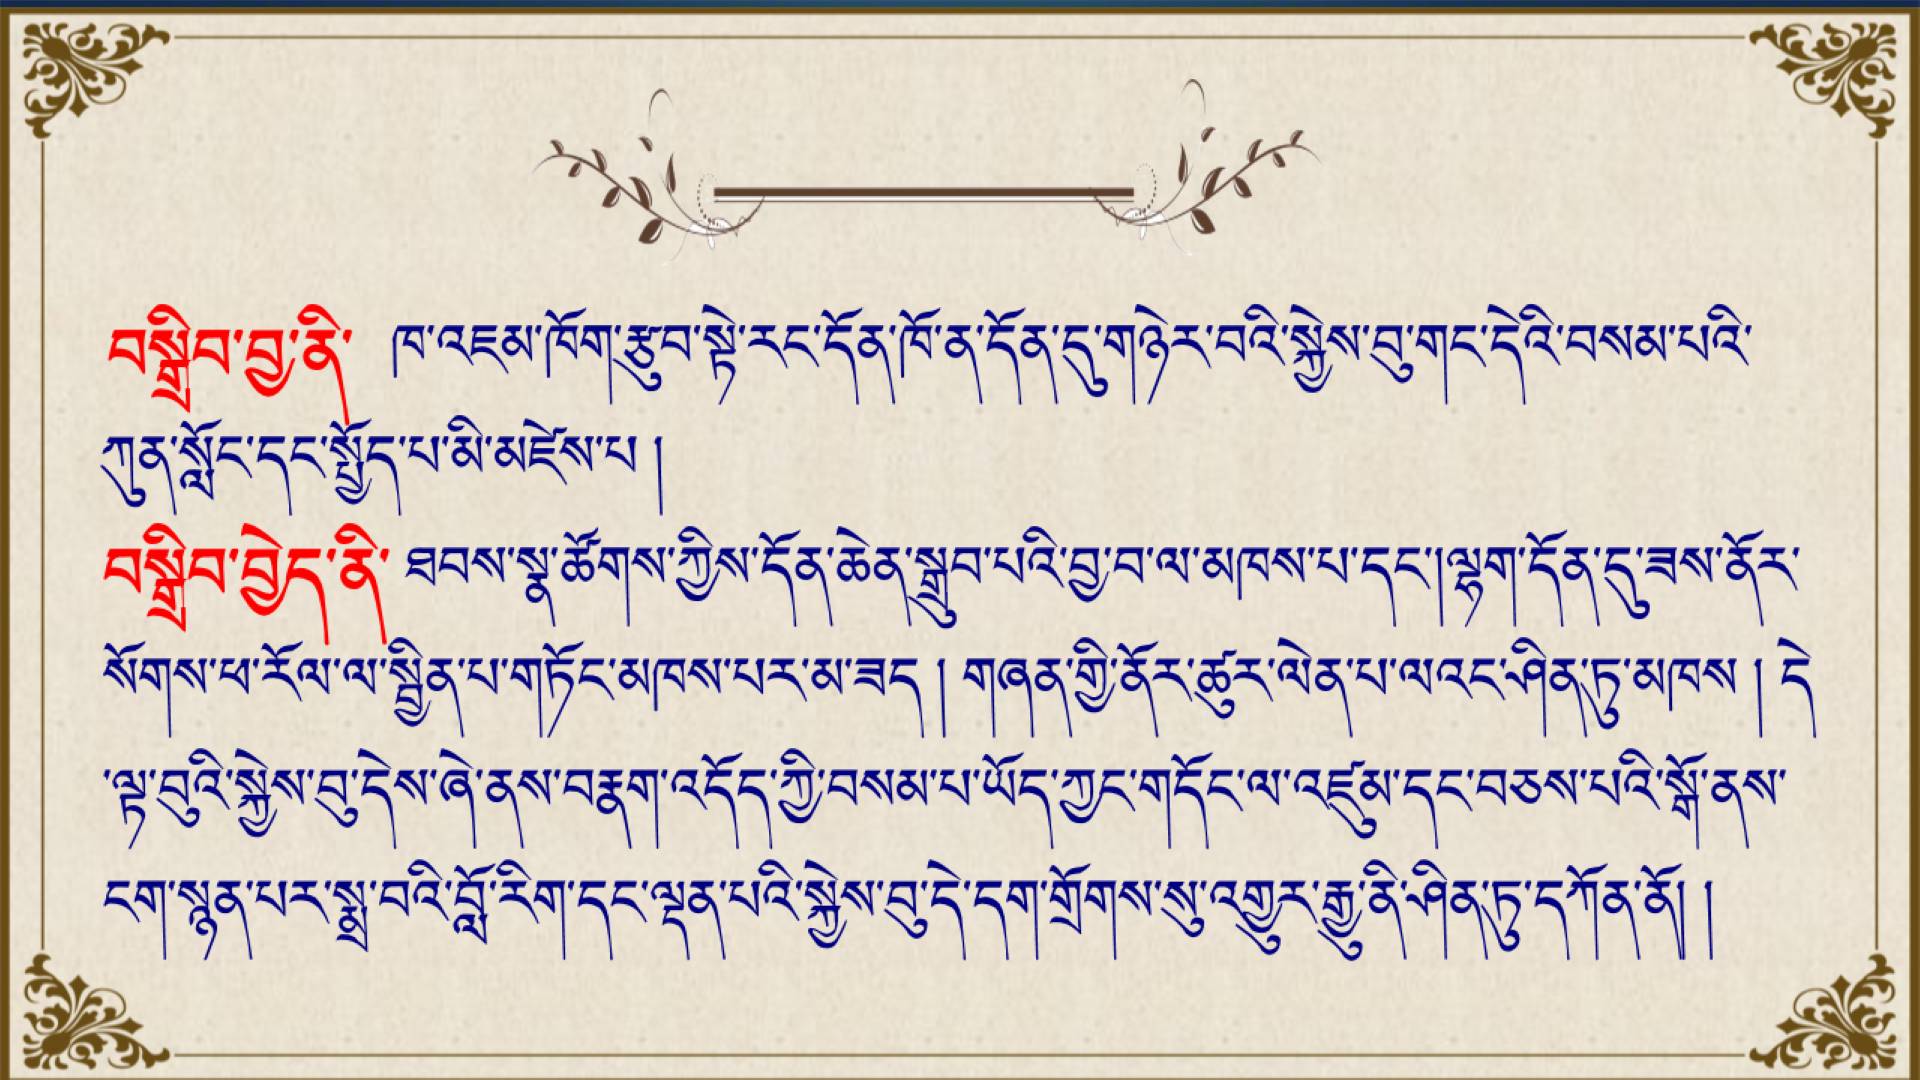 བསྒྲིབ་བྱ་ནི་ ཁ་འཇམ་ཁོག་རྩུབ་སྟེ་རང་དོན་ཁོ་ན་དོན་དུ་གཉེར་བའི་སྐྱེས་བུ་གང་དེའི་བསམ་པའི་
ཀུན་སློང་དང་སྤྱོད་པ་མི་མཛེས་པ །
བསྒྲིབ་བྱེད་ནི་ ཐབས་སྣ་ཚོགས་ཀྱིས་དོན་ཆེན་སྒྲུབ་པའི་བྱ་བ་ལ་མཁས་པ་དང་།ལྷག་དོན་དུ་ཟས་ནོར་
སོགས་ཕ་རོལ་ལ་སྦྱིན་པ་གཏོང་མཁས་པར་མ་ཟད །  གཞན་གྱི་ནོར་ཚུར་ལེན་པ་ལའང་ཤིན་ཏུ་མཁས །  དེ
་ལྟ་བུའི་སྐྱེས་བུ་དེས་ཞེ་ནས་བརྣག་འདོད་ཀྱི་བསམ་པ་ཡོད་ཀྱང་གདོང་ལ་འཛུམ་དང་བཅས་པའི་སྒོ་ནས་
ངག་སྙན་པར་སྨྲ་བའི་བློ་རིག་དང་ལྡན་པའི་སྐྱེས་བུ་དེ་དག་གྲོགས་སུ་འགྱུར་རྒྱུ་ནི་ཤིན་ཏུ་དཀོན་ནོ། །